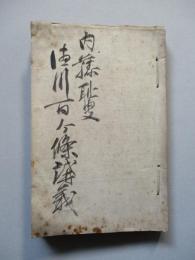 内藤耻叟
徳川百个條講義